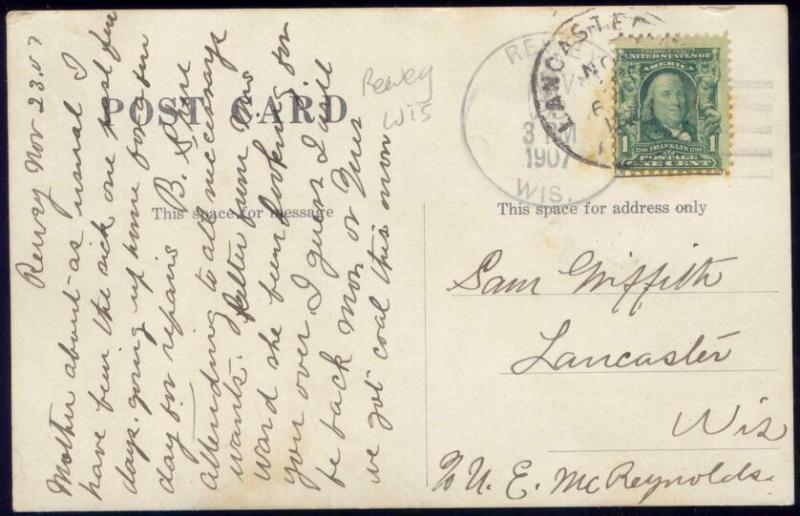 POST CARD
This space for message
This space for address only
Rewey Nov 23.07
Mother about as usual I
have been the sick one past few
days. going up home for ten
day on repairs B. S. are
attending to all necessary
wants. letter from Mrs
Ward she been looking for
you over. I guess I will
be back Mon or Tues
we got coal this mon
Rewey
Wis
REWEY
NOV
3 PM
1907
WIS.
LANCASTER
NOV
UNITED STATES OF
AMERICA
1 FRANKLIN 1
POSTAGE
ONE CENT
Sam Griffith
Lancaster
Wis
% U. E. McReynolds.